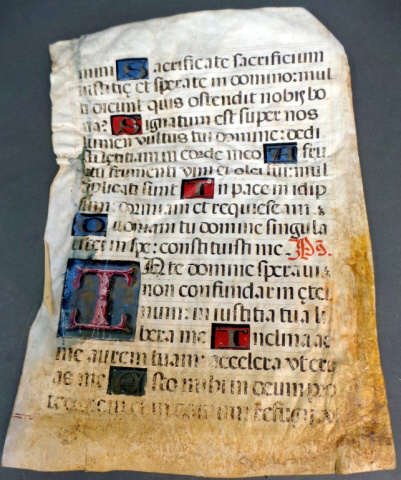 mini Sacrificate sacrificium
iustitię et sperate in domino: mul
ti dicunt quis ostendit nobis bo
na? Signatum est super nos
lumen vultus tui domine: dedi
sti lętitiam in corde meo A fru
ctu frumenti vini et olei sui: mul
tiplicati sunt In pace in idip
sum: dormiam et requiescam.
Quoniam tu domine singula
riter in spe: constituisti me. Ps.
INte domine speraui:
non confundar in ęter
num: in iustitia tua li
bera me Inclina a
me aurem tuam: accelera vt eru
as me Esto mihi in deum pro
tectorem et in domum refugii vt